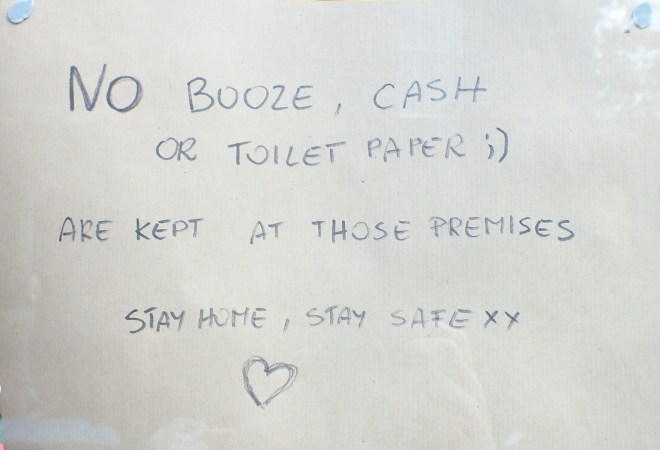 NO BOOZE, CASH
OR TOILET PAPER ;)
ARE KEPT AT THOSE PREMISES
STAY HOME, STAY SAFE xx